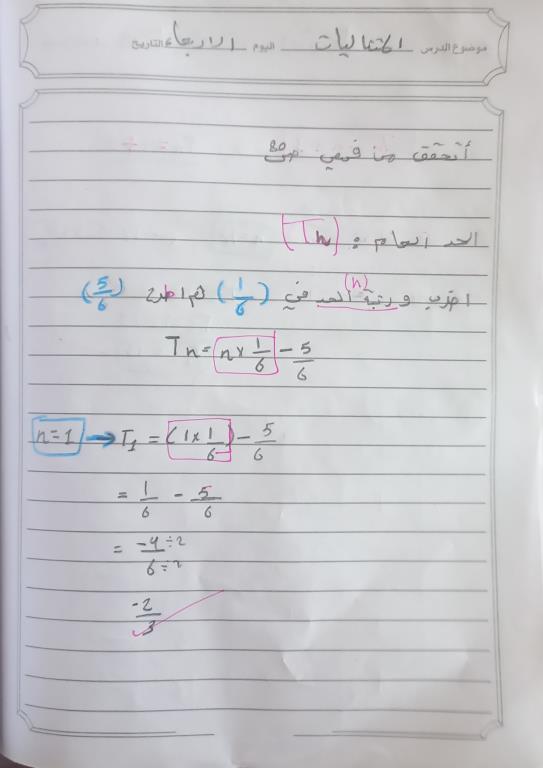 موضوع الدرس المتتاليات اليوم الاربعاء التاريخ
أتحقق من فهمي ص80
الحد العام : (Tn)
(n)
اضرب رتبة الحد في (1/6) ثم اطرح (5/6)
Tn = n × 1/6 - 5/6
n=1 → T1 = (1 × 1/6) - 5/6
= 1/6 - 5/6
= -4÷2/6÷2
-2/3